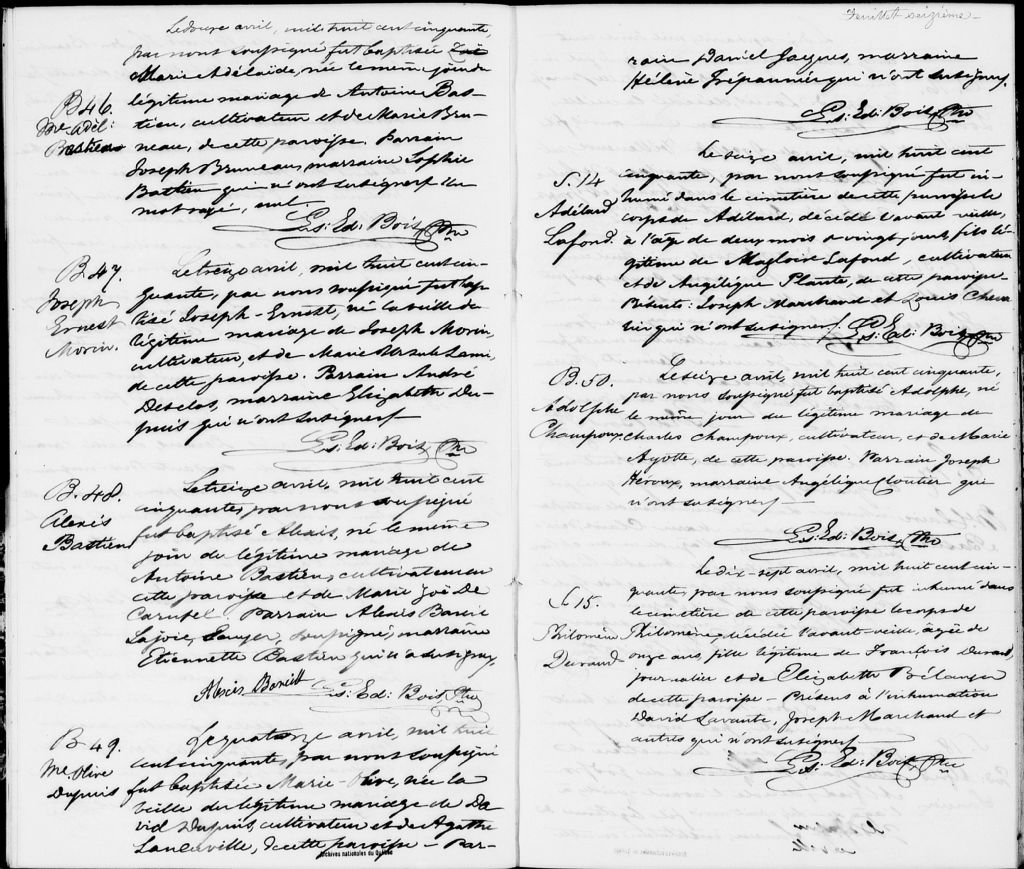 Le douze avril, mil huit cent cinquante,
par nous soussigné fut baptisée Zoë
Marie Adélaïde, née le même jour du
légitime mariage de Antoine Bas-
B.46.
Me Adél:
Bastien
tien, cultivateur et de Marie Bru-
neau, de cette paroisse. Parrain
Joseph Bruneau, marraine Sophie
Bastien qui n'ont su signer un
mot rayé, nul.
Ls: Ed: Bois, Ptre
B.47.
Joseph
Ernest
Morin.
Le treize avril, mil huit cent cin-
quante, par nous soussigné fut bap-
tisé Joseph-Ernest, né la veille du
légitime mariage de Joseph Morin,
cultivateur, et de Marie Ursule Lami,
de cette paroisse. Parrain André
Desclos, marraine Elizabeth Du-
puis qui n'ont su signer
Ls: Ed: Bois, Ptre
B.48.
Alexis
Bastien
Le treize avril, mil huit cent
cinquante, par nous soussigné
fut baptisé Alexis, né le même
jour du légitime mariage de
Antoine Bastien, cultivateur de
cette paroisse et de Marie Zoë De
Carufel. Parrain Alexis Basile
Lajoie, soussigné, marraine
Etiennette Bastien qui n'a su signer
Ls: Ed: Bois, Ptre
B.49.
Me Olive
Dupuis
Le quatorze avril, mil huit
cent cinquante, par nous soussigné
fut baptisée Marie-Olive, née la
veille du légitime mariage de Da
vid Dupuis, cultivateur et de Agathe
de cette paroisse - Par-
Archives nationales du Québec
Feuillet seizième -
raine Daniel Jacques, marraine
Hélène Trépannier qui n'ont su signer.
Ls: Ed: Bois, Ptre
S.14
Adélard
Lafond.
Le seize avril, mil huit cent
cinquante, par nous soussigné fut in-
humé dans le cimetière de cette paroisse le
corps de Adélard, décédé l'avant veille,
à l'âge de deux mois & vingt jours, fils lé-
gitime de Magloire Lafond, cultivateur
et de Angélique Plante, de cette paroisse
Présents: Joseph Marchand et Louis Cheva
lier qui n'ont su signer
Ls: Ed: Bois, Ptre
B.50.
Adolphe
Champoux
Le seize avril, mil huit cent cinquante,
par nous soussigné fut baptisé Adolphe, né
le même jour du légitime mariage de
Charles Champoux, cultivateur, et de Marie
Ayotte, de cette paroisse. Parrain Joseph
Héroux, marraine Angélique Cloutier qui
n'ont su signer
Ls: Ed: Bois, Ptre
S.15.
Philomène
Durand
Le dix-sept avril, mil huit cent cin-
quante, par nous soussigné fut inhumé dans
le cimetière de cette paroisse le corps de
Philomène, décédée l'avant-veille, âgée de
onze ans, fille légitime de François Durand,
journalier et de Elizabeth Bélanger
de cette paroisse - Présens à l'inhumation
David Joseph Marchand et
autres qui n'ont su signer
Ls: Ed: Bois, Ptre